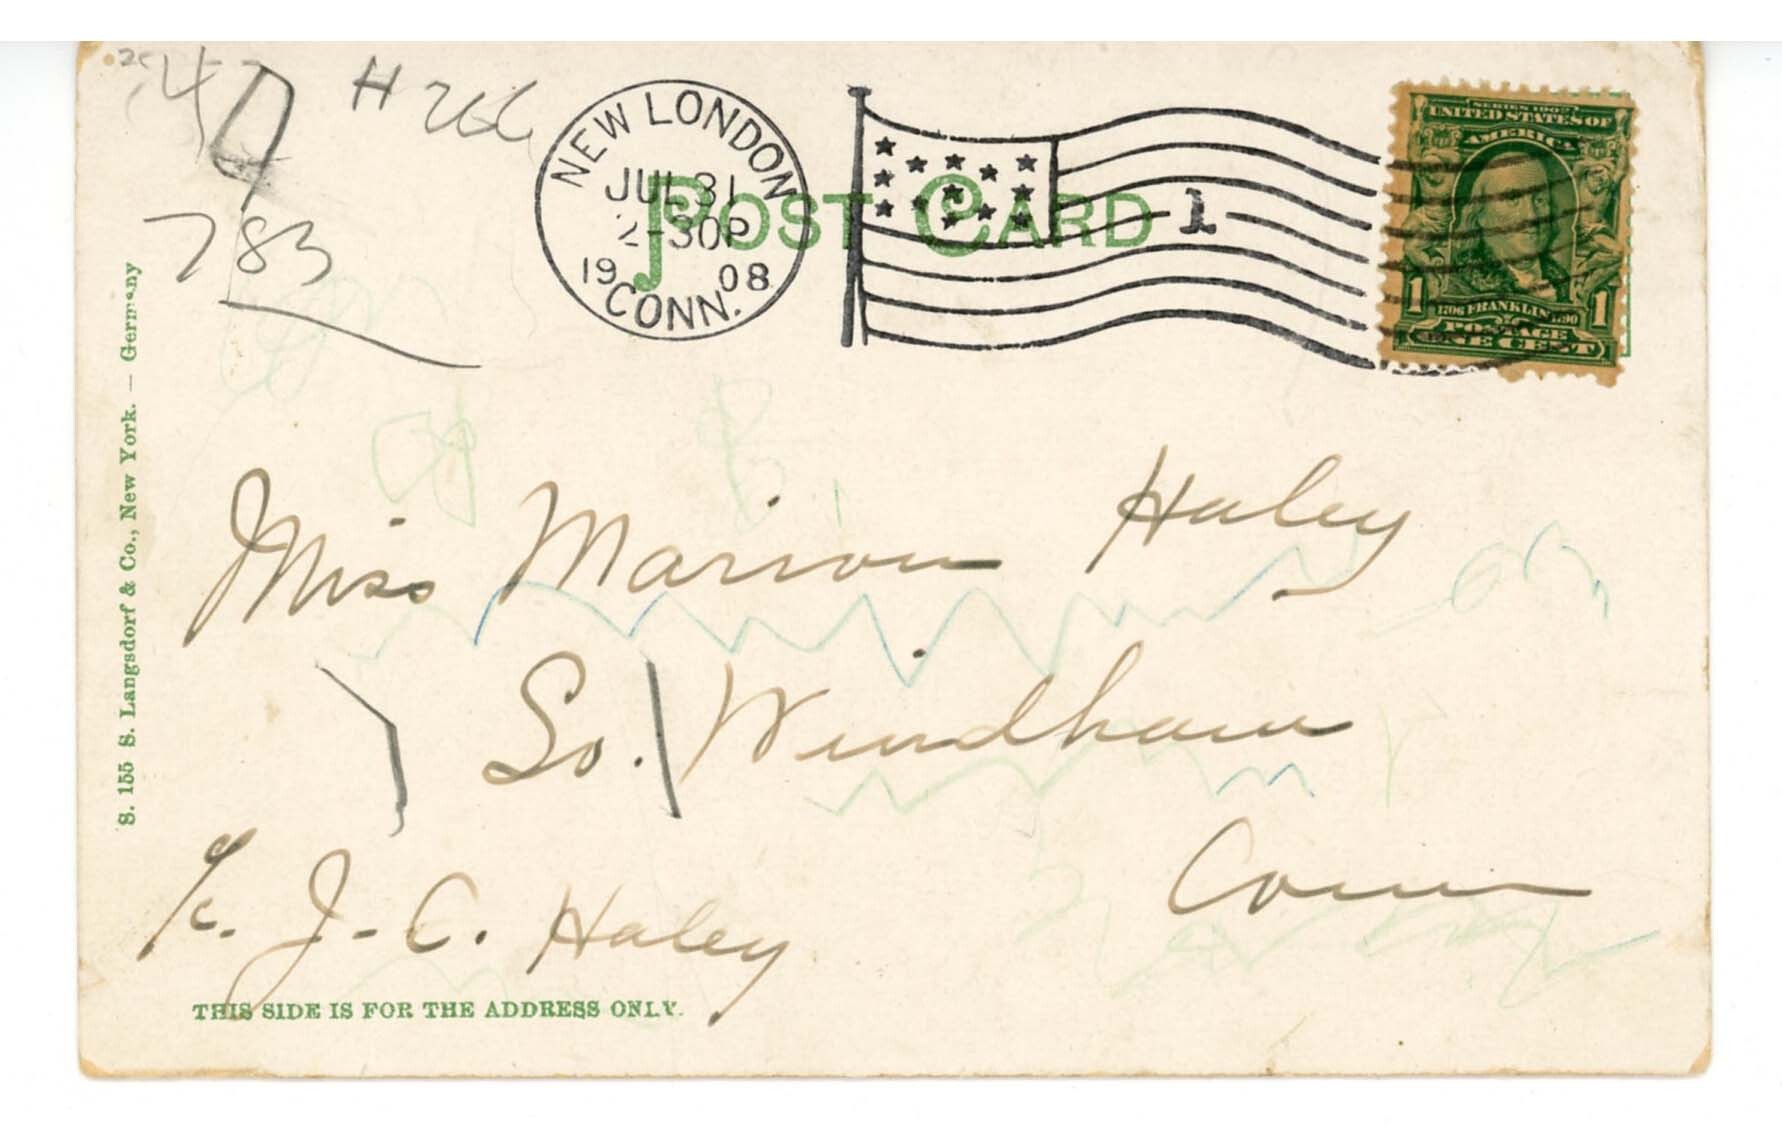 H 266
783
NEW LONDON
JUL 31
2-30P
1908
CONN.
1
POST CARD
SERIES 1902
UNITED STATES OF
AMERICA
1 1
1706 FRANKLIN 1790
POSTAGE
ONE CENT
Miss Marion Haley
So. Windham
Conn
c/o. J. C. Haley
THIS SIDE IS FOR THE ADDRESS ONLY.
S. 155 S. Langsdorf & Co., New York. — Germany